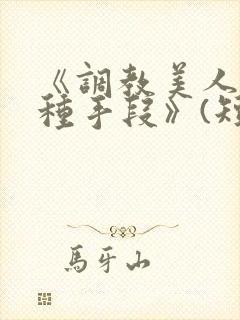 《調教美人
種手段》(短
馬牙山